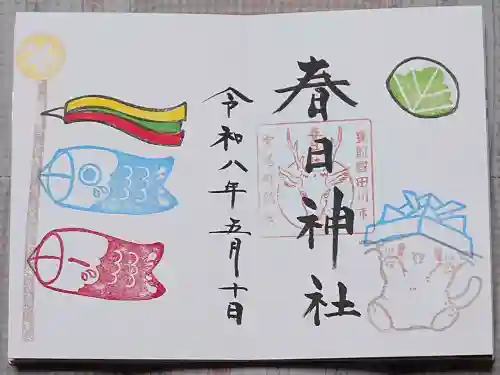 春日神社
令和八年五月十日